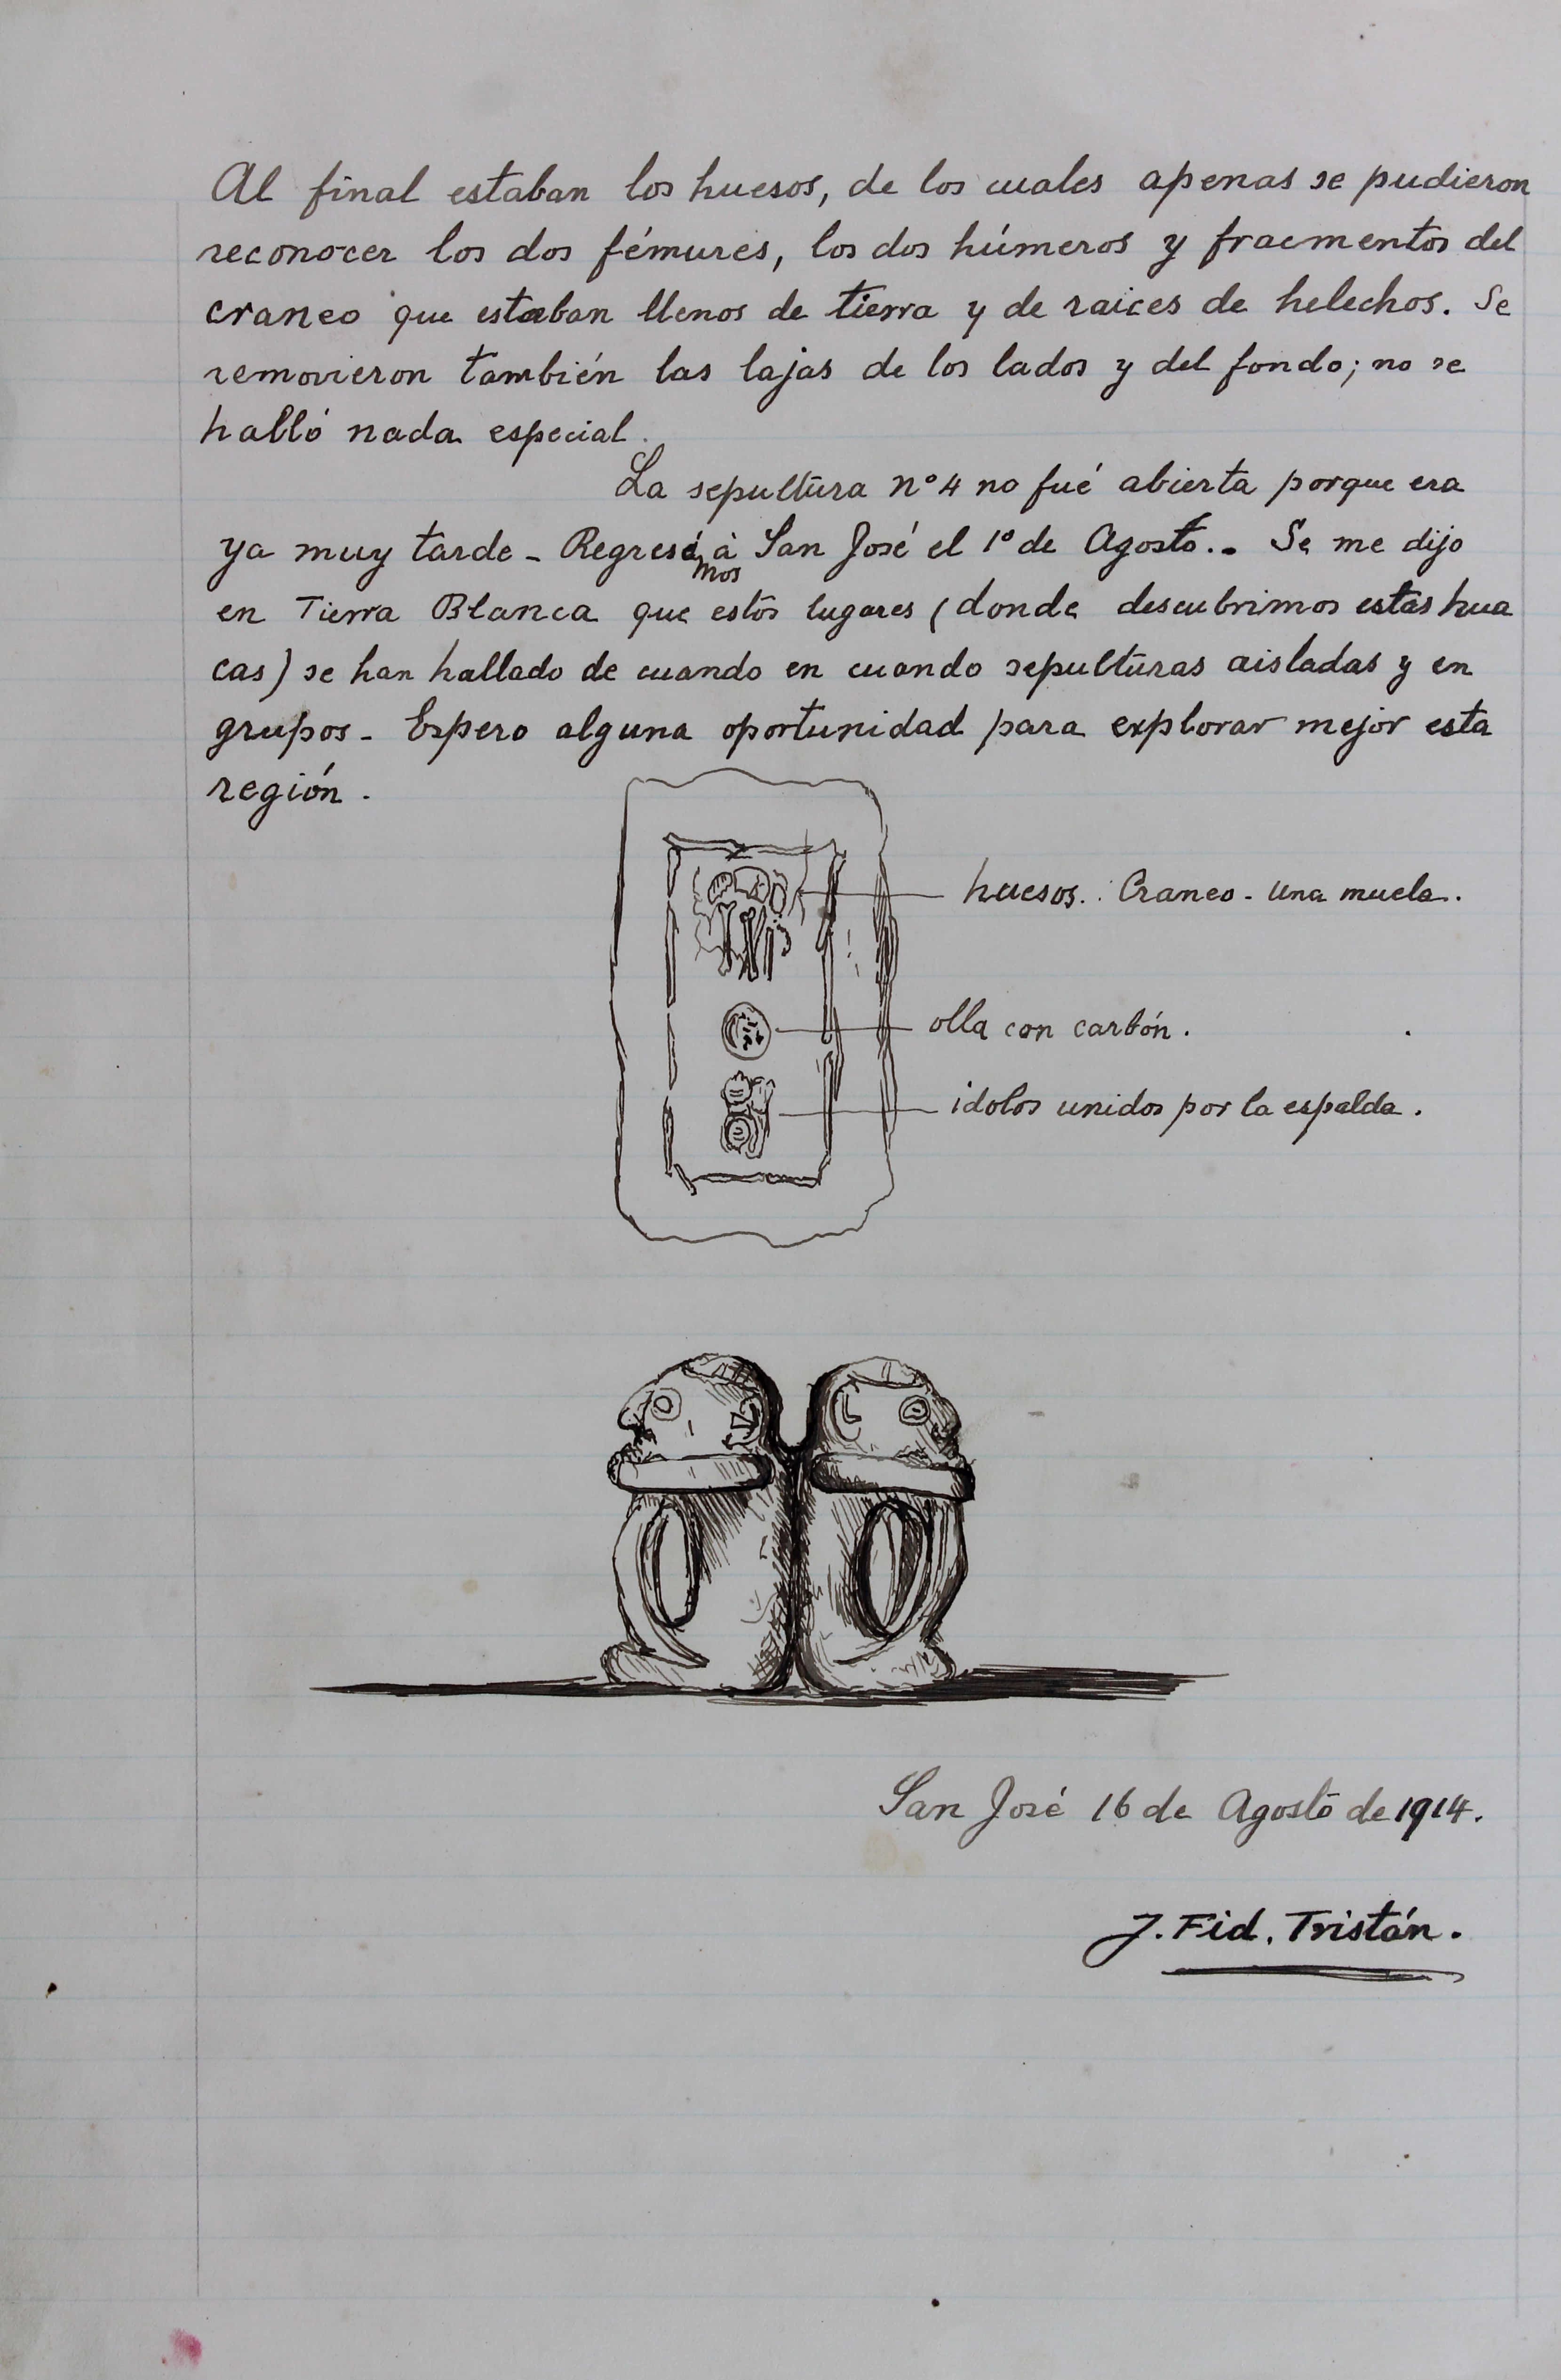 Al final estaban los huesos, de los cuales apenas se pudieron
reconocer los dos fémures, los dos húmeros y fracmentos del
craneo que estaban llenos de tierra y de raices de helechos. Se
removieron también las lajas de los lados y del fondo; no se
halló nada especial.
La sepultura nº 4 no fué abierta porque era
ya muy tarde - Regresámos à San José el 1º de Agosto.. Se me dijo
en Tierra Blanca que estos lugares (donde descubrimos estas hua
cas) se han hallado de cuando en cuando sepulturas aisladas y en
grupos - Espero alguna oportunidad para explorar mejor esta
región.
huesos.. Craneo - una muela..
olla con carbón.
idolos unidos por la espalda.
San José 16 de Agosto de 1914.
J. Fid. Tristán.